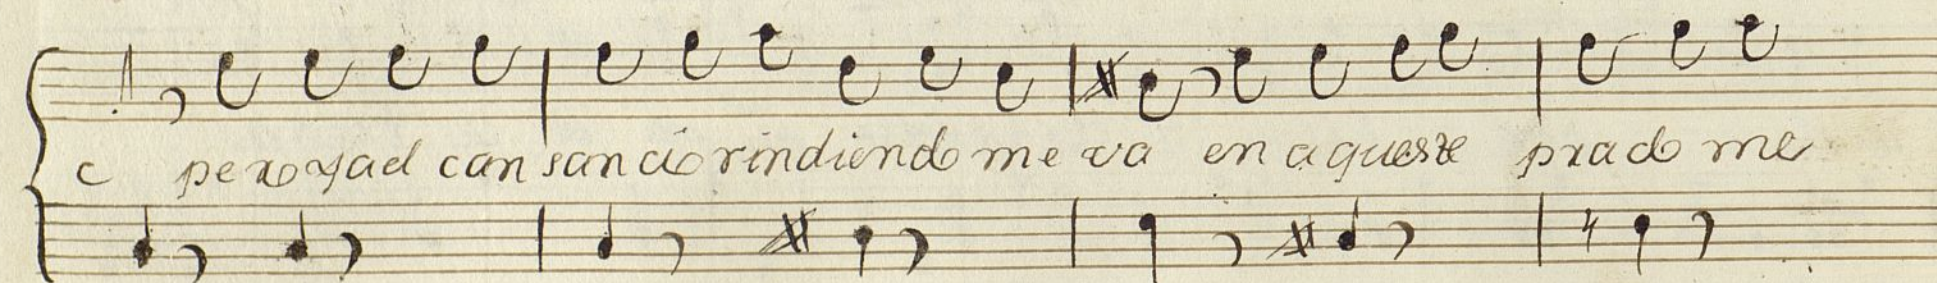 c pero ya el can san cio rindiendo me va en a queste prado me